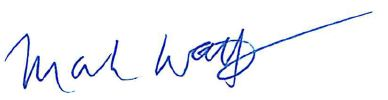 Mark Watts